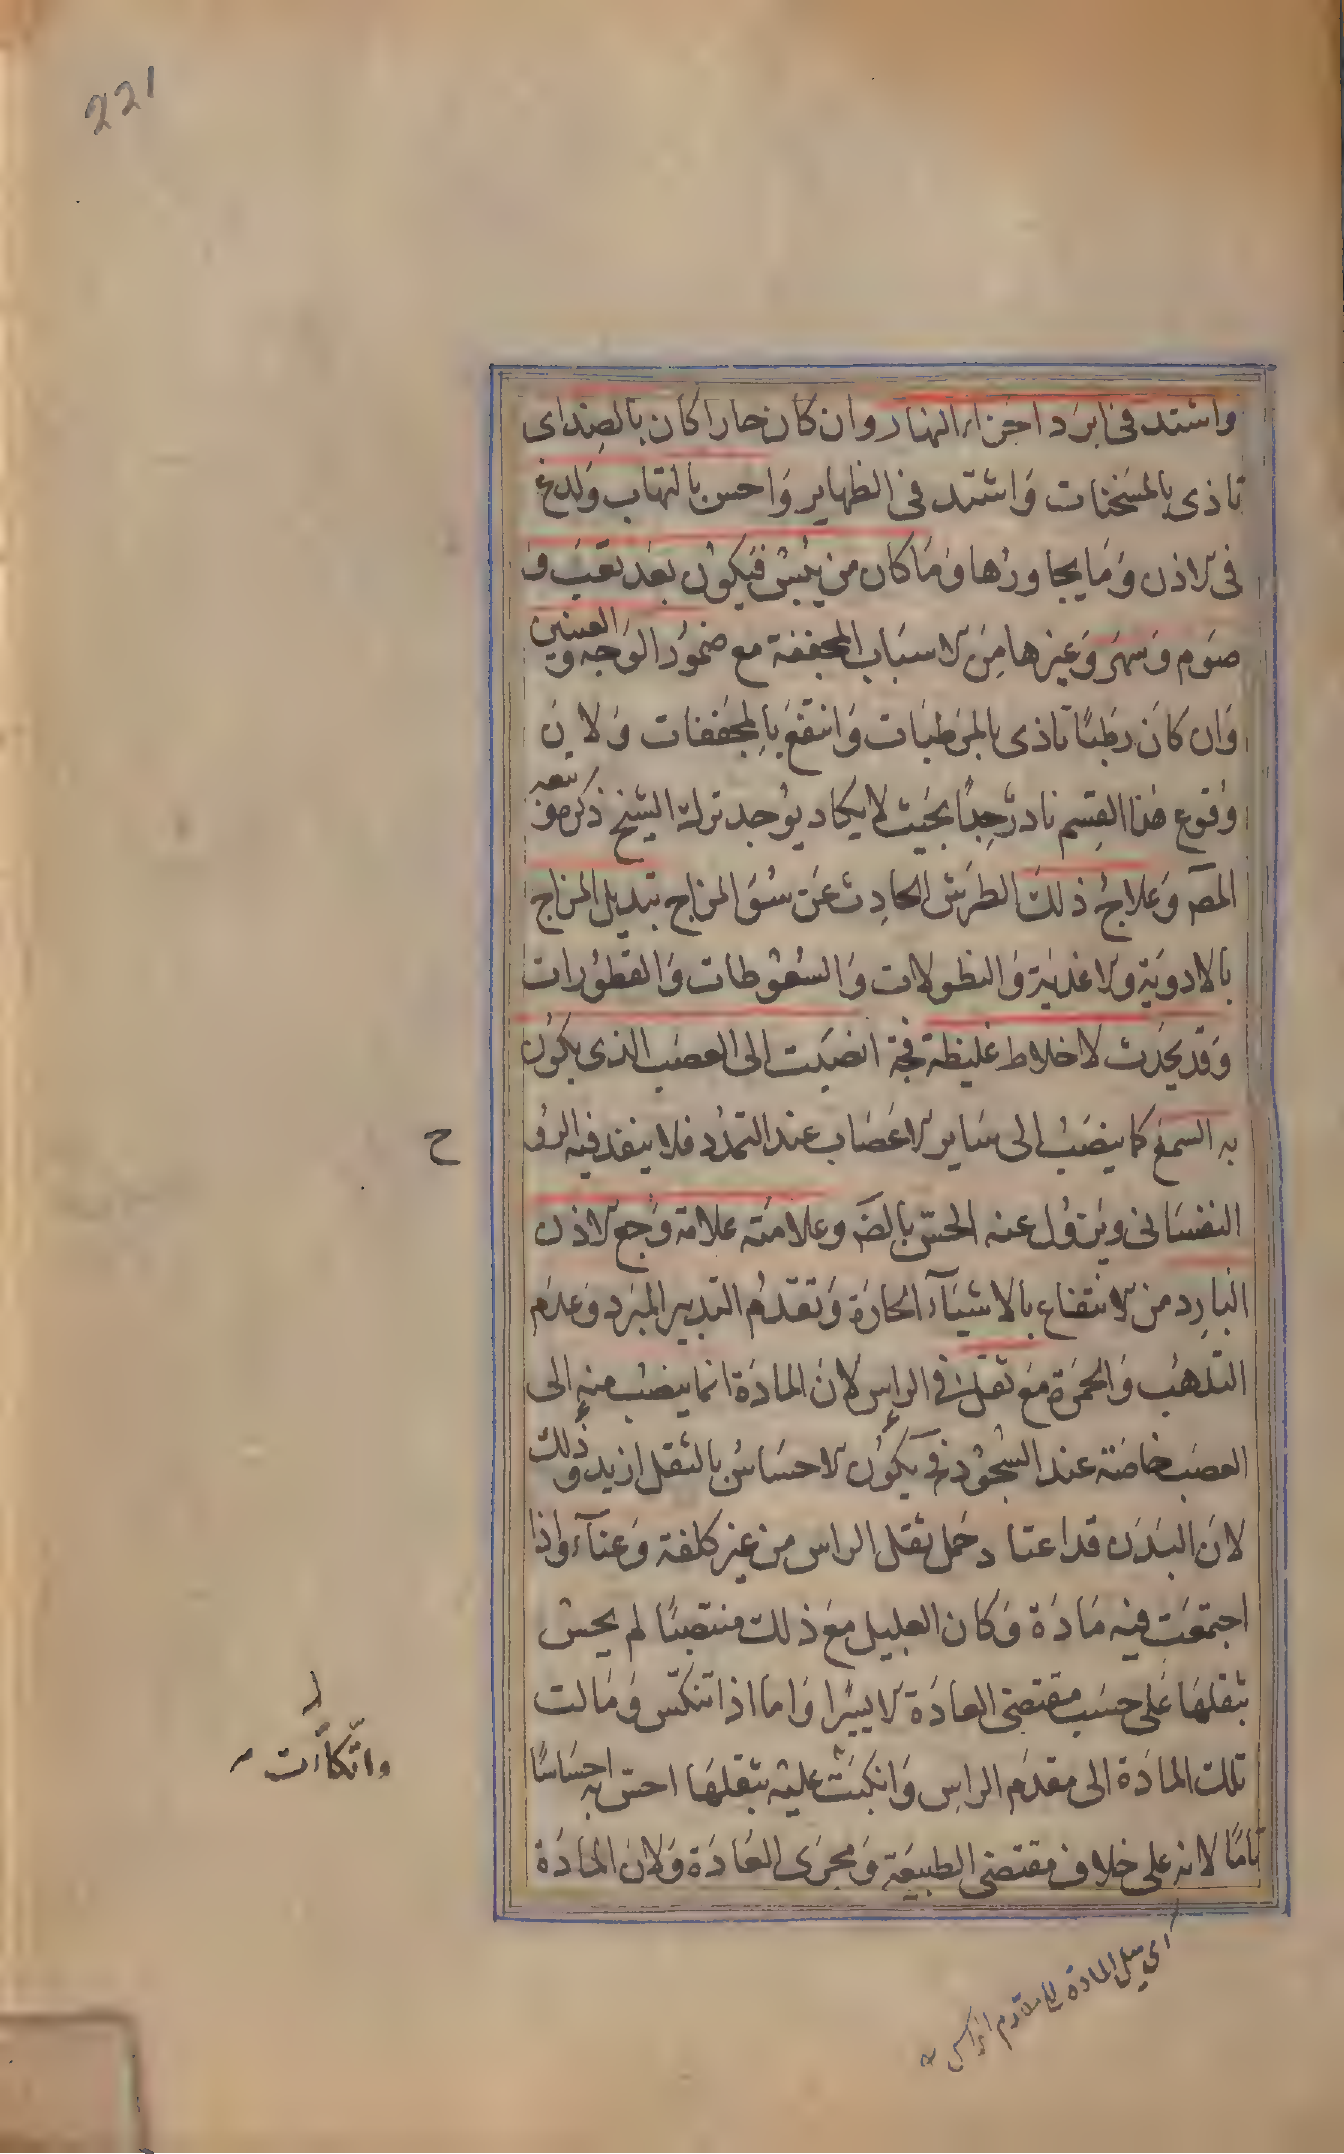 221
واشتد فى ابرد اجزاء النهار وان كان حارا كان بالضد اى
تاذى بالمسخنات وَاشتد فى الظهاير وَاحس بالتهاب وَلدغ
فى الاذن وَمَا يجاورُها وَمَا كان من يُبس فيكوُن بَعَد تعَب وَ
صَوم وَسَهَر وَغيرها مِنَ الاسبَاب المجففة مع ضمُوُر الوَجه وَالعينين
وَان كانَ رَطبًا تاذى بالمرَطبَات وَانتفعَ بالمجَففات وَلانَ
وُقوع هٰذا القِسم نادرٌ جِدًا بحَيث لا يكاد يوُجد ترك الشيخ ذكره وَتبعه
المصَ وَعلاجُ ذلكَ الطرَش الحادِث عَن سُوَ المزاج تبديل المزاج
بالادوَية والاغذيَة وَالنطولات وَالسُعُوُطات وَالقطوُرات
وَقد يحَدث لاخلاط غليظة فجة انصبَت الى العصَب الذى يكوُن
به السمع كما ينصَبُ الى سَاير الاعَصَاب عند التمدُد فلا ينفذ فيه الرو
ح
النفسَانى ويَزوُل عنه الحسّ بالضَه وعلامتَه علامة وَجع الاذن
البارِد من الانتفاع بالاشيَآء الحارَة وَتقدُم التدبير المبَرد وَعدَم
التلهُب وَالحمَرة مَع ثقل فى الراس لانَ المادَة انما ينصَبُ منه الى
العصَب خاصَة عند السُجُوُد فيَكوُن الاحسَاسُ بالثقل ازيد وَذلك
لانَ البَدَن قد اعتاد حَمل ثقل الراس من غير كلفة وَعنآء وَاذا
اجتمعَت فيه مَادَة وَكان العليل مَع ذلك منتصبًا لم يحس
بثقلهَا عَلى حسَب مقتضى العادَة الا يسَيرا وَاما اذا تنكّس وَمَالت
تلك المادَة الى مقدَم الراسِ وَانكبَت عليه بثقلهَا احسّ به احسَاسًا
واتّكأت
تامًا لانه على خلاف مقتضى الطبيعَة وَمجرَى العَادَة وَلانَ المادَة
اى ميل المادة الى مقدم الراس